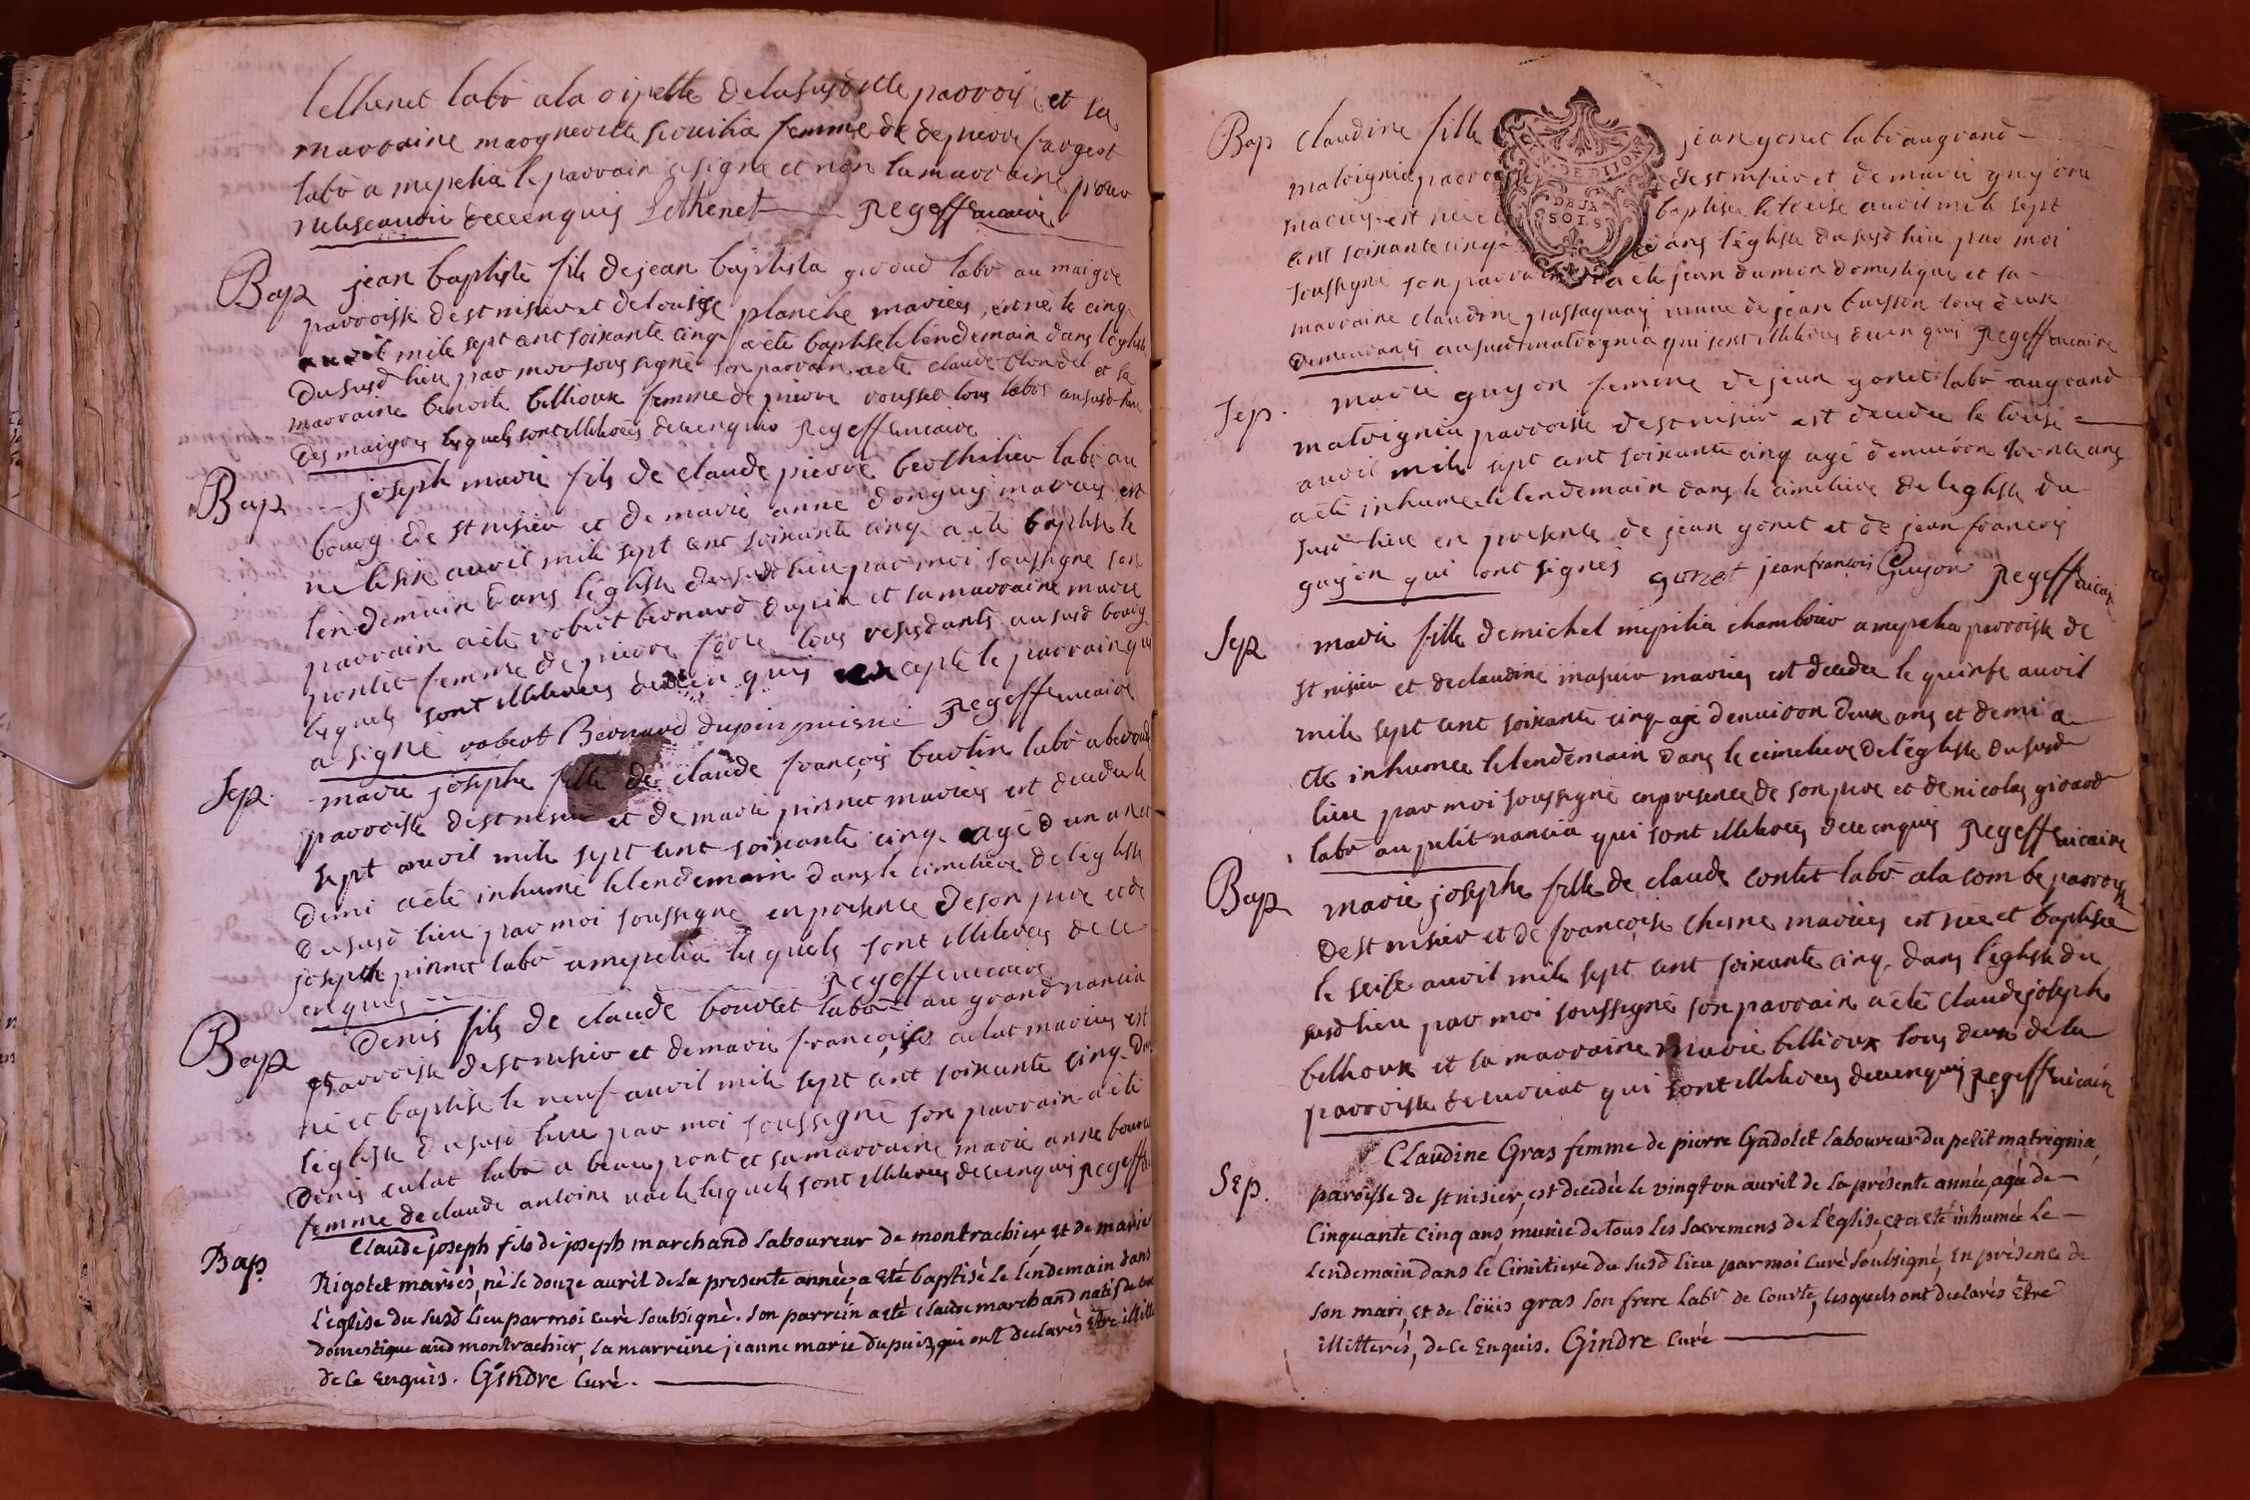 lethenet labr a la oizelle de la susditte parrois et sa
marraine margueritte
femme de de pierre fargeot
labr a mepelia le parrain a signé et non la marraine pour
ne le scauoir de ce enquis Lethenet Regeffe uicaire
Bap jean baptiste fils de jean baptista giroud labr au maigre
parroisse de st nisier et de louise planche mariees, est né le cinq
auril mile sept cent soixante cinq a eté baptisé le lendemain dans l'eglise
du susd lieu par moi soussigné son parrain a eté claude blondel et sa
marraine benoite bellioux femme de pierre rousset tous labrs au susd lieu
des maigres lesquels sont illiterées de ce enquis Regeffe uicaire
Bap joseph marie fils de claude pierre berthilier labr au
bourg de st nisier et de marie anne donguy mariés est
né le six auril mile sept cent soixante cinq a eté baptisé le
lendemain dans l'eglise du susd lieu par moi soussigné son
parrain a eté robert bernard dupin et sa marraine marie
pontet femme de pierre favre tous residants au susd bourg
lesquels sont illiterées de ce enquis excepté le parrain qui
a signé robert Bernard dupin puisné Regeffe uicaire
Sep. marie josephe fille de claude françois burtin labr a
parroisse de st nisier et de marie pirnet mariées est decedee le
sept auril mile sept cent soixante cinq agé d'un an et
demi a eté inhumé le lendemain dans le cimetiere de l'eglise
du susd lieu par moi soussigné en presence de son pere et de
joseph pirnet labr a mepelia lesquels sont illiterées de ce
enquis Regeffe uicaire
Bap Denis fils de claude bouvret labr au grand nancia
parroisse de st nisier et de marie françoise culat mariées est
né et baptisé le neuf auril mile sept cent soixante cinq dans
l'eglise du susd lieu par moi soussigné son parrain a eté
denis culat labr a beaupont et sa marraine marie anne
femme de claude antoine lesquels sont illiterées de ce enquis Regeffe
Bap. Claude joseph fils de joseph marchand laboureur de montrachier, et de marie
Rigolet mariés, né le douze auril de la presente année, a eté baptisé le lendemain dans
l'église du susd lieu par moi curé soubsigné. son parrein a eté claude marchand
domestique aud montrachier, la marreine jeanne marie dupuis, qui ont declarés etre
de ce enquis. Gindre curé.
Bap claudine fille jean gonet labr au grand
matrignia de st nisier et de marie guyon
baptisee le treise auril mile sept
cent soixante cinq dans l'eglise du susd lieu par moi
soussigné son parrain a eté jean dumon domestique et sa
marraine claudine passaquay ueuue de jean buisson tous deux
demeurants au susd matrignia qui sont illiterées de ce enquis Regeffe uicaire
Sep. marie guyon femme de jean gonet labr au grand
matrignia parroisse de st nisier est decedee le treise
auril mile sept cent soixante cinq agé d'enuiron trente ans
a eté inhumee le lendemain dans le cimetiere de l'eglise du
susd lieu en presence de jean gonet et de jean françois
guyon qui ont signés gonet jean françois Guyon Regeffe uicaire
Sep marie fille de michel mepilia chambrier a mepelia parroisse de
st nisier et de claudine mariees est decedee le quinse auril
mile sept cent soixante cinq agé d'enuiron deux ans et demi a
eté inhumee le lendemain dans le cimetiere de l'eglise du susd
lieu par moi soussigné en presence de son pere et de nicolas girard
labr au petit nancia qui sont illiterées de ce enquis Regeffe uicaire
Bap marie josephe fille de claude contet labr a la combe parroisse
de st nisier et de françoise chesne mariees est née et baptisée
le seise auril mile sept cent soixante cinq dans l'eglise du
susd lieu par moi soussigné son parrain a eté claude joseph
bellioux et sa marraine marie bellioux tous deux de la
parroisse de curciat qui sont illiterées de ce enquis Regeffe uicaire
Sep. Claudine Gras femme de pierre Gadolet laboureur du petit matrignia,
paroisse de st nisier, est decedée le vingt un auril de la présente année, agée de
cinquante cinq ans, munie de tous les sacremens de l'église, et a eté inhumée le
lendemain dans le cimitiere du susd lieu par moi curé soubsigné, en présence de
son mari, et de loüis gras son frere labr de courte, lesquels ont declarés etre
illitterés, de ce enquis. Gindre curé